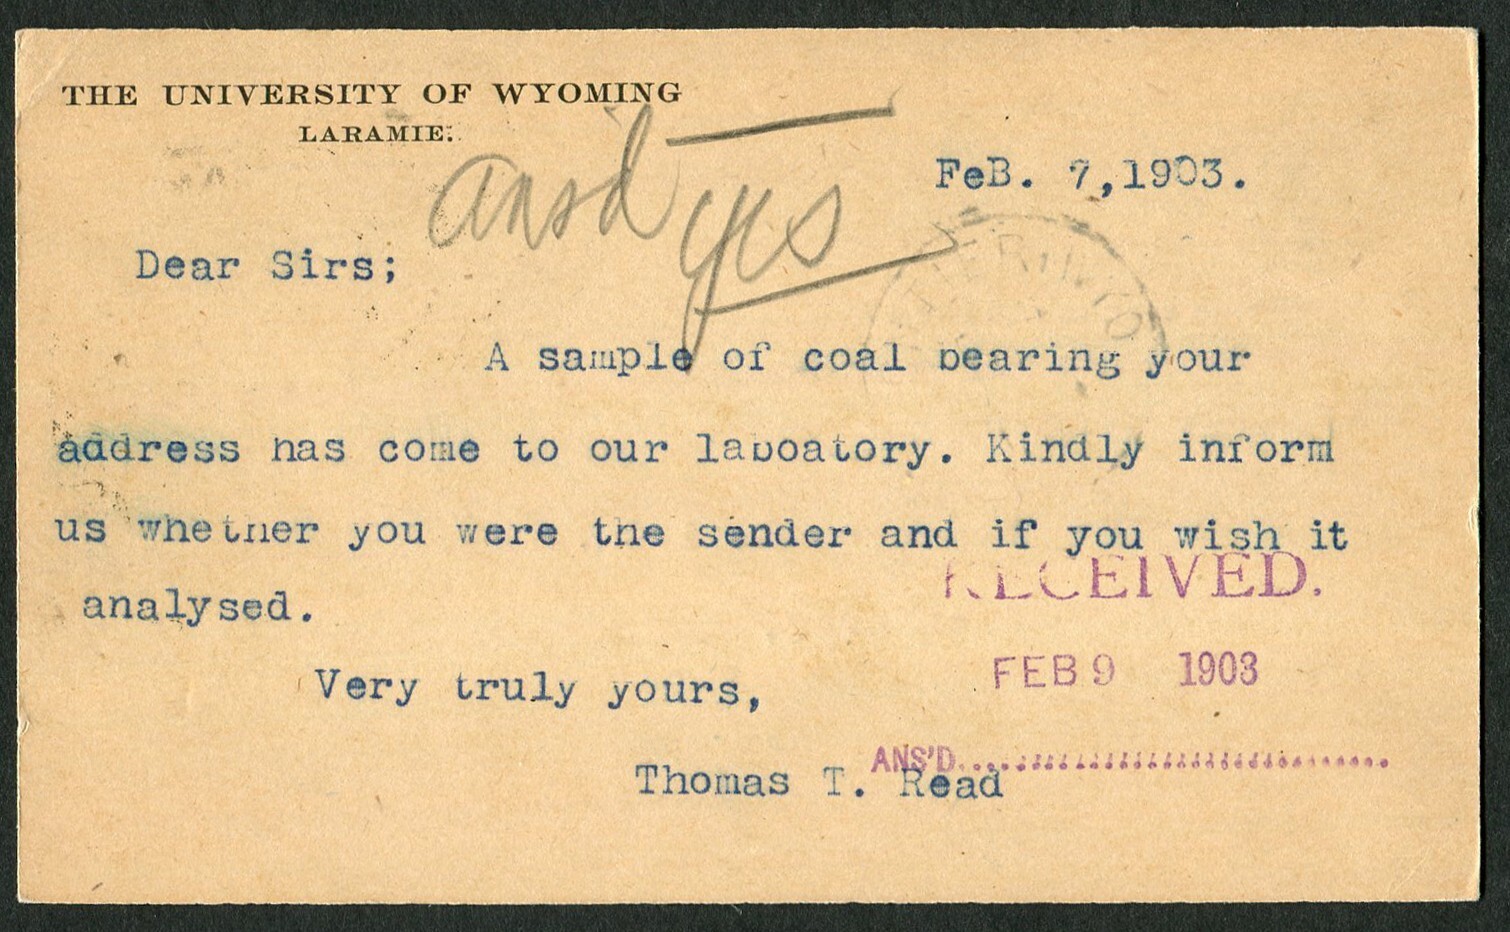 THE UNIVERSITY OF WYOMING
LARAMIE.
ansd yes
FeB. 7,1903.
Dear Sirs;
A sample of coal bearing your
address has come to our laboatory. Kindly inform
us whether you were the sender and if you wish it
analysed.
RECEIVED.
FEB 9 1903
Very truly yours,
ANS'D
Thomas T. Read